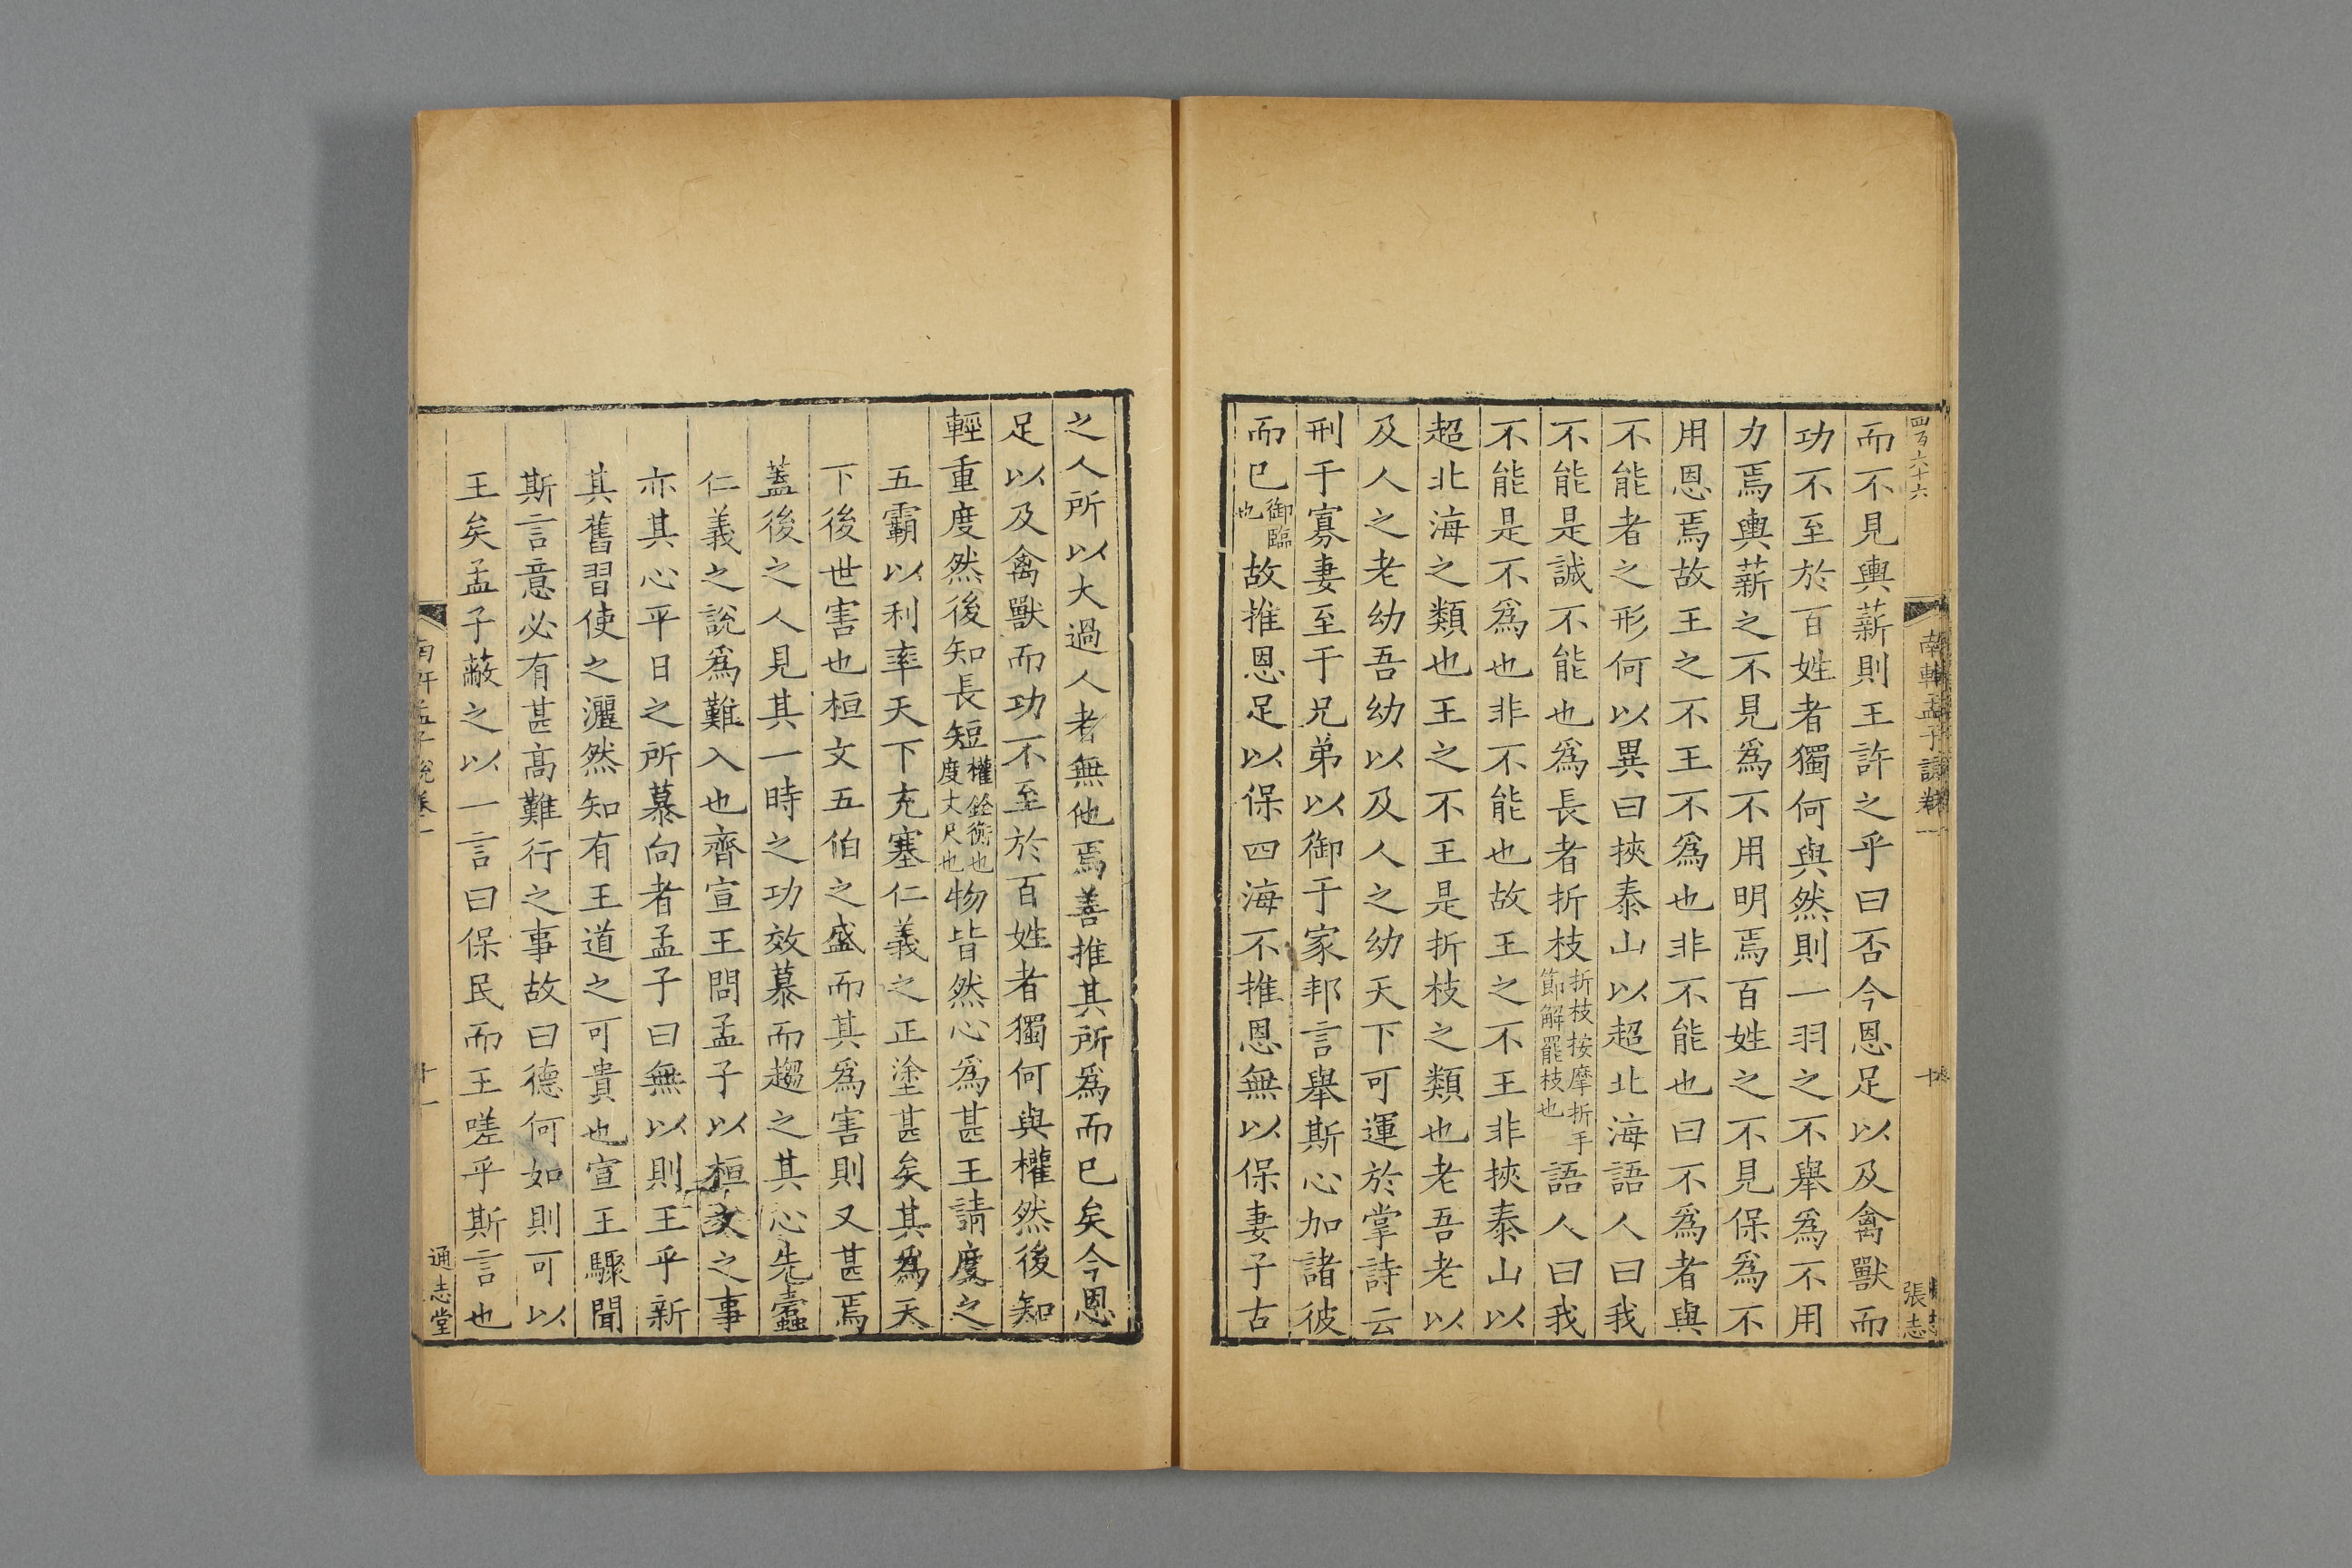 四百六十六
南軒孟子說卷一
十
張志
而不見輿薪則王許之乎曰否今恩足以及禽獸而
功不至於百姓者獨何與然則一羽之不舉爲不用
力焉輿薪之不見爲不用明焉百姓之不見保爲不
用恩焉故王之不王不爲也非不能也曰不爲者與
不能者之形何以異曰挾泰山以超北海語人曰我
不能是誠不能也爲長者折枝折枝按摩折手節解罷枝也語人曰我
不能是不爲也非不能也故王之不王非挾泰山以
超北海之類也王之不王是折枝之類也老吾老以
及人之老幼吾幼以及人之幼天下可運於掌詩云
刑于寡妻至于兄弟以御于家邦言舉斯心加諸彼
而已御臨也故推恩足以保四海不推恩無以保妻子古
之人所以大過人者無他焉善推其所爲而已矣今恩
足以及禽獸而功不至於百姓者獨何與權然後知
輕重度然後知長短權銓衡也度丈尺也物皆然心爲甚王請度之
五霸以利率天下充塞仁義之正塗甚矣其爲天
下後世害也桓文五伯之盛而其爲害則又甚焉
蓋後之人見其一時之功效慕而趨之其心先蠹
仁義之說爲難入也齊宣王問孟子以桓文之事
亦其心平日之所慕向者孟子曰無以則王乎新
其舊習使之灑然知有王道之可貴也宣王驟聞
斯言意必有甚高難行之事故曰德何如則可以
王矣孟子蔽之以一言曰保民而王嗟乎斯言也
南軒孟子說卷一
十一
通志堂